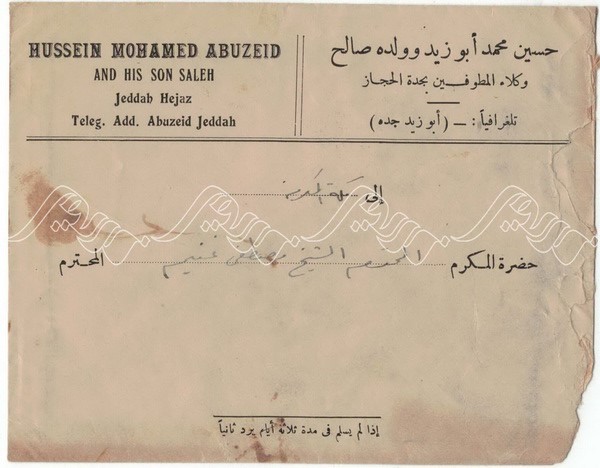 HUSSEIN MOHAMED ABUZEID
AND HIS SON SALEH
Jeddah Hejaz
Teleg. Add. Abuzeid Jeddah
حسين محمد أبو زيد وولده صالح
وكلاء المطوفين بجدة الحجاز
تلغرافياً : ــ ( أبو زيد جده )
إلى مكة المكرمة
حضرة المكرم المحترم الشيخ مصطفى غنيم المحترم
إذا لم يسلم فى مدة ثلاثة أيام يرد ثانياً